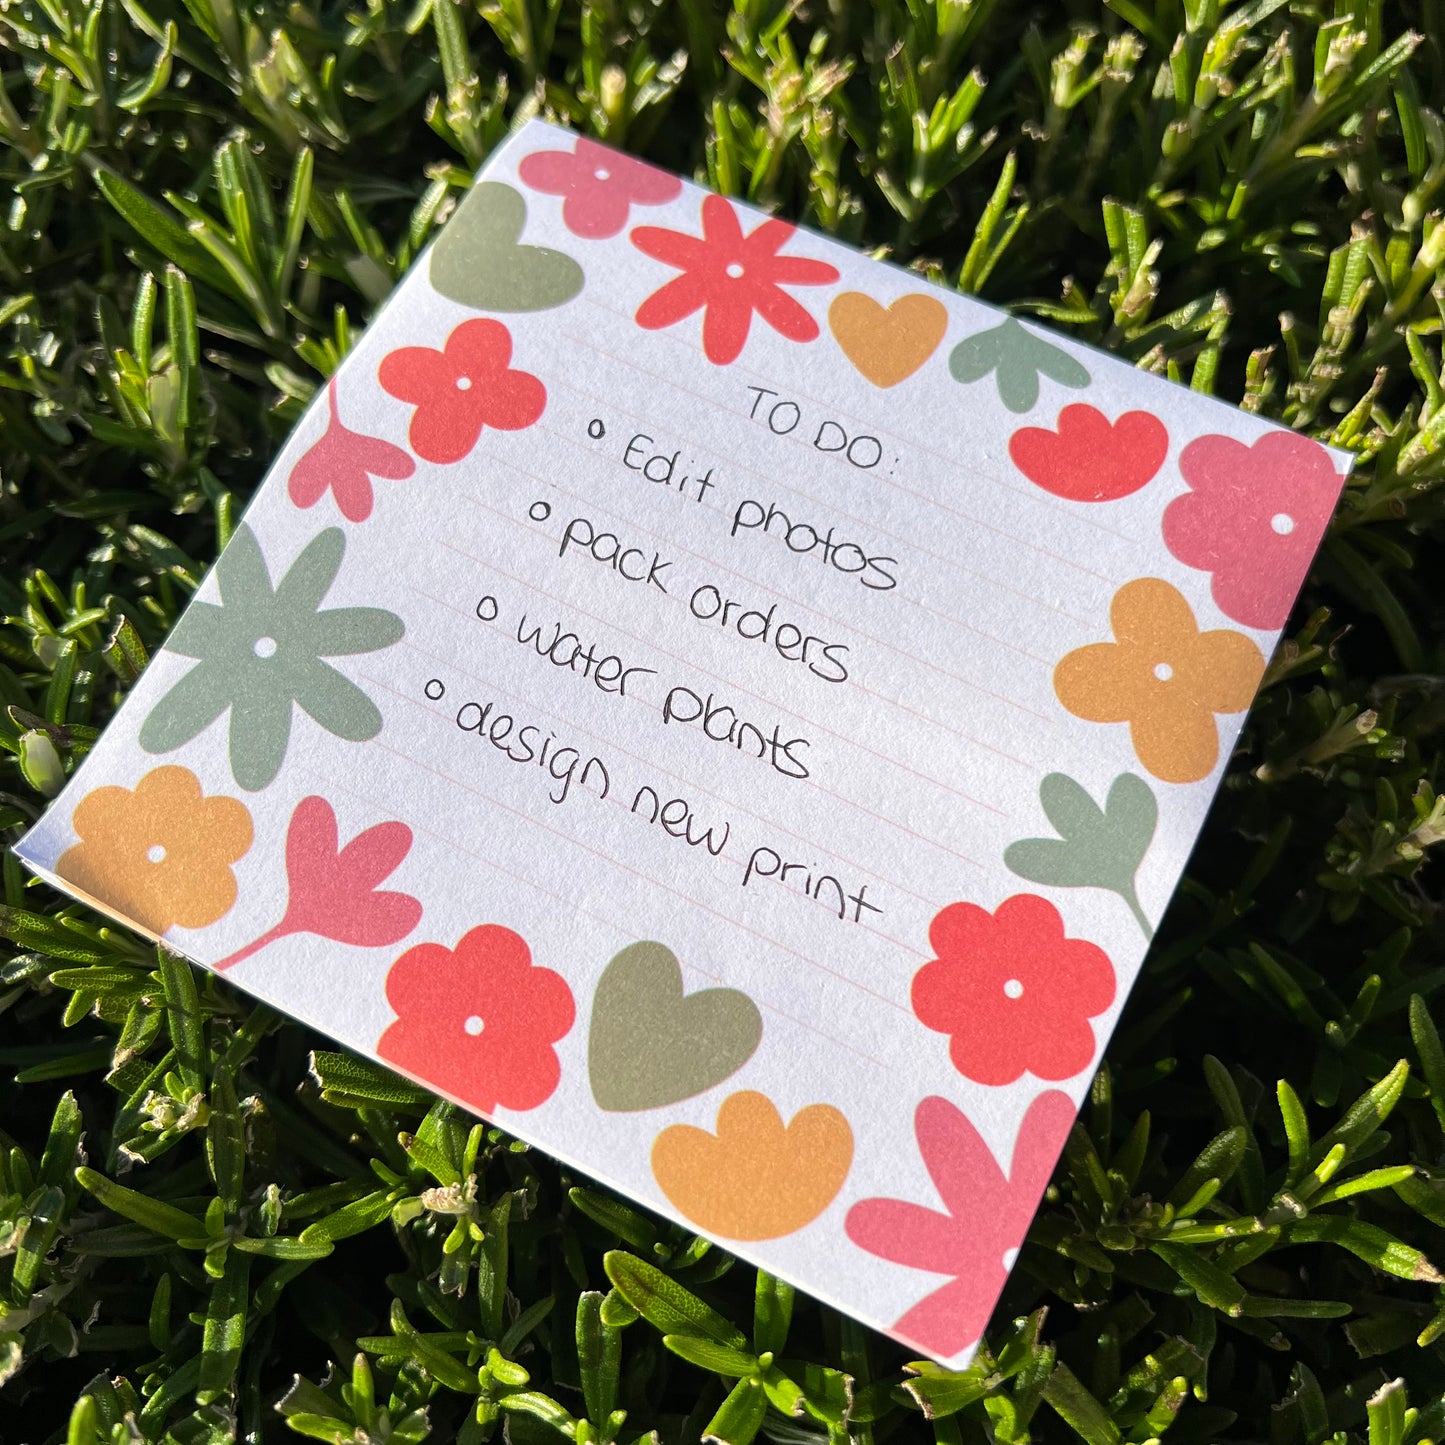 TO DO:
Edit photos
pack orders
water plants
design new print